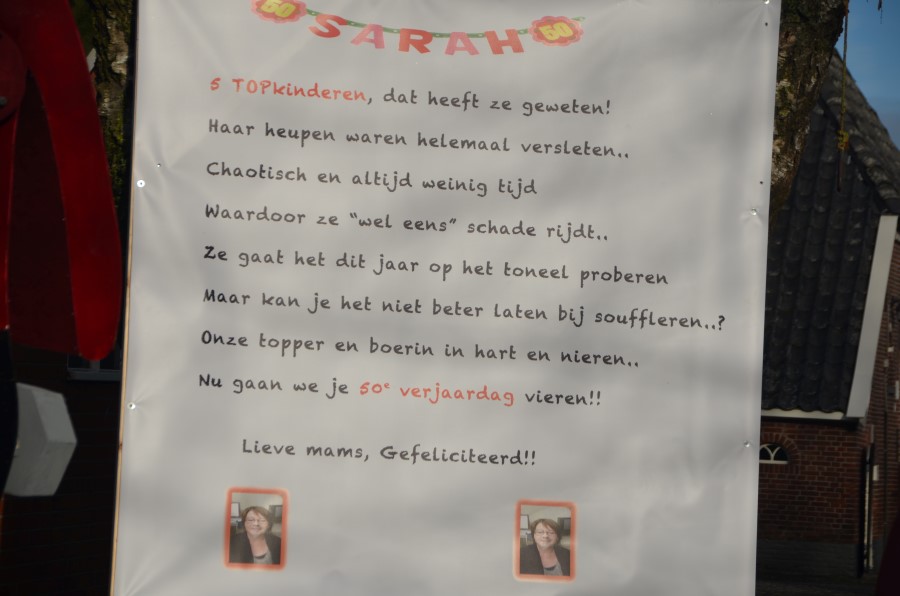 50 SARAH 50
5 TOPkinderen, dat heeft ze geweten!
Haar heupen waren helemaal versleten..
Chaotisch en altijd weinig tijd
Waardoor ze "wel eens" schade rijdt..
Ze gaat het dit jaar op het toneel proberen
Maar kan je het niet beter laten bij souffleren..?
Onze topper en boerin in hart en nieren..
Nu gaan we je 50e verjaardag vieren!!
Lieve mams, Gefeliciteerd!!